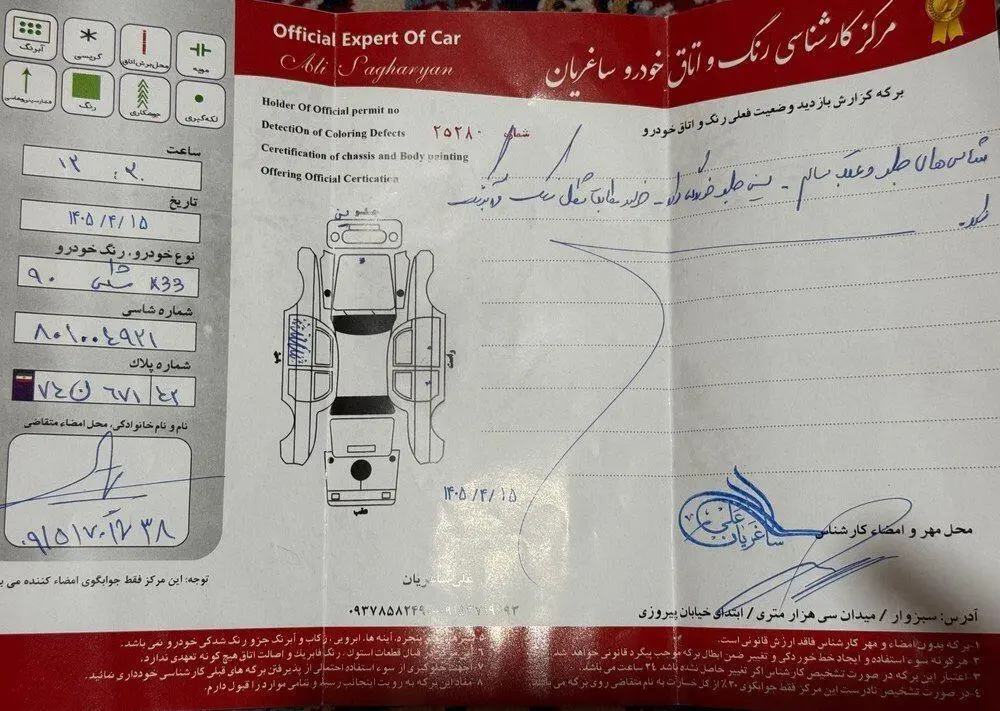 Official Expert Of Car
Ali Sagharyan
مرکز کارشناسی رنگ و اتاق خودرو ساغریان
Holder Of Official permit no
DetectiOn of Coloring Defects
Ceretification of chassis and Body painting
Offering Official Certication
شماره ۲۵۲۸۰
برگه گزارش بازدید وضعیت فعلی رنگ و اتاق خودرو
شاسی‌های جلو و عقب سالم - سینی جلو خوردگی دارد -
آبرنگ
گریسی
محل برش اتاق
مویه
رنگ
جوشکاری
لکه گیری
ساعت
۱۲:۳۰
تاریخ
۱۴۰۵/۴/۱۵
نوع خودرو، رنگ خودرو
X33 ۹۰
شماره شاسی
۸۰۱۰۰۴۹۲۱
شماره پلاک
۷۴ ن ۶۷۱ ۴۲
نام و نام خانوادگی، محل امضاء متقاضی
توجه: این مرکز فقط جوابگوی امضاء کننده می
جلو
چپ
راست
عقب
۱۴۰۵/۴/۱۵
علی ساغریان
محل مهر و امضاء کارشناس
علی ساغریان
آدرس: سبزوار / میدان سی هزار متری / ابتدای خیابان پیروزی
۱-برگه بدون امضاء و مهر کارشناس فاقد ارزش قانونی است.
۲- هرگونه سوء استفاده و ایجاد خط خوردگی و تغییر ضمن ابطال برگه موجب پیگرد قانونی خواهد شد.
۳-اعتبار این برگه در صورت تشخیص کارشناس اگر تغییر حاصل نشده باشد ۲۴ ساعت می باشد.
۴-در صورت تشخیص نادرست این مرکز فقط جوابگوی ۳۰٪ از کل خسارات به نام متقاضی روی برگه می باشد
پنجره، آینه ها، ابرویی، رکاب و آبرنگ جزو رنگ شدگی خودرو نمی باشد.
قبال قطعات استوک، رنگ فابریک و اصالت اتاق هیچ گونه تعهدی ندارد.
۷- جهت جلوگیری از سوء استفاده احتمالی از پذیرفتن برگه های قبلی کارشناسی خودداری نمائید.
۸- مفاد این برگه به رویت اینجانب رسید و تمامی موارد را قبول دارم.